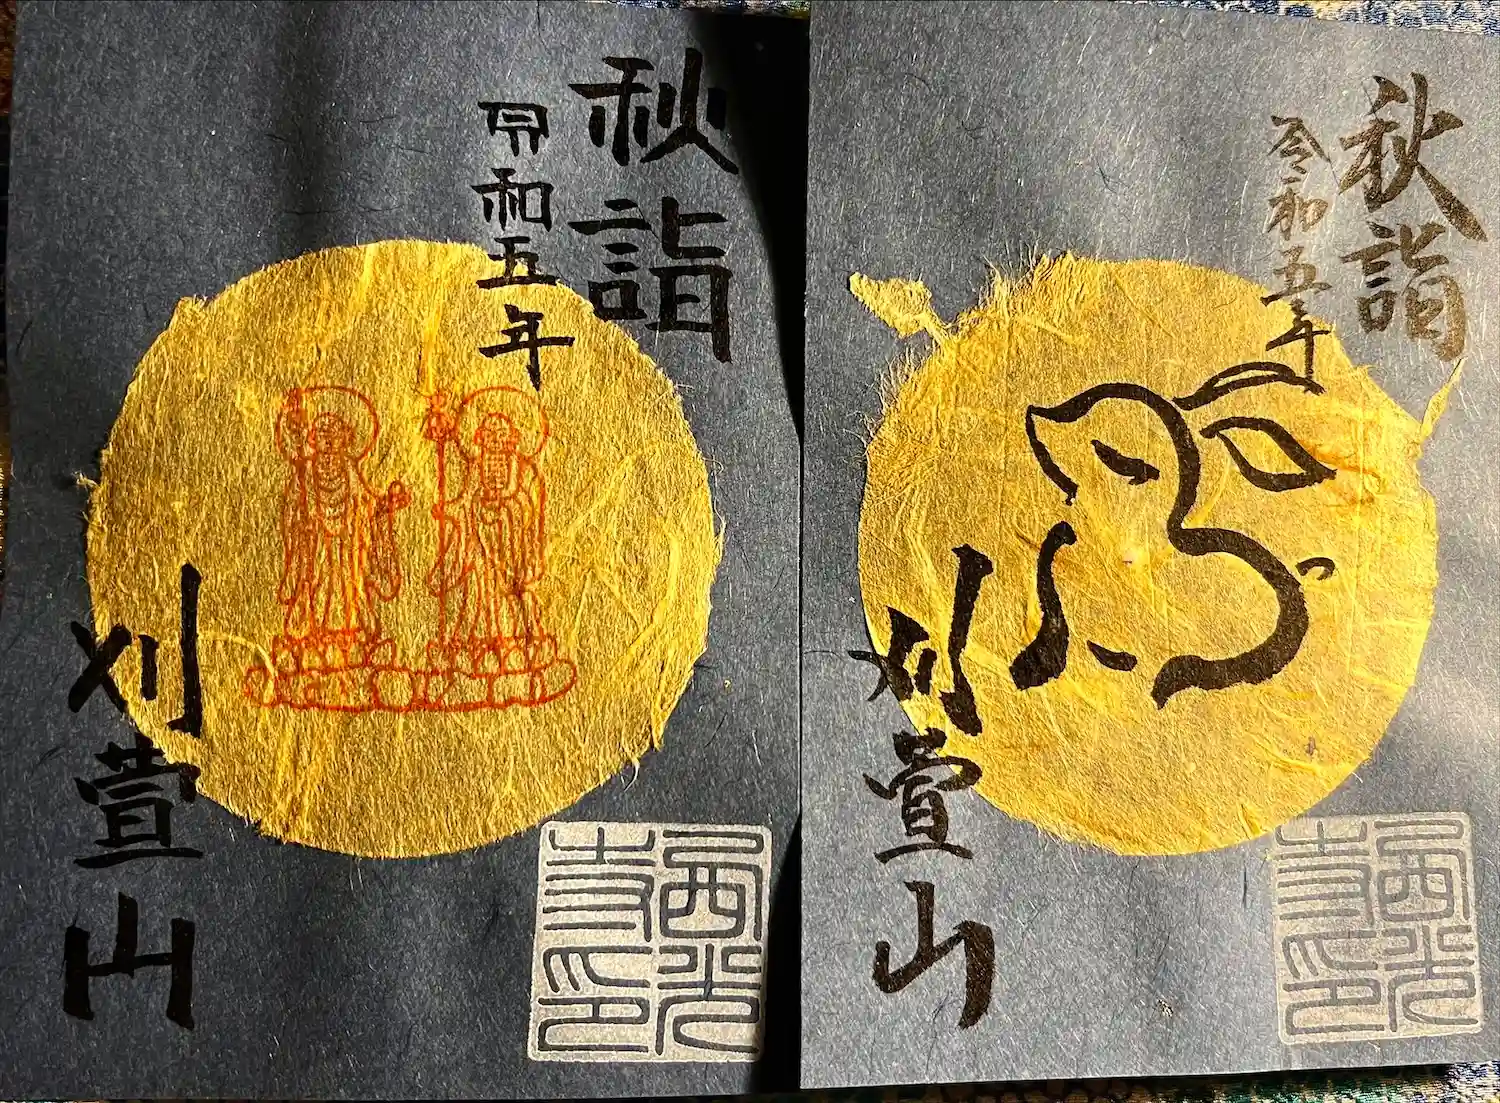 秋詣
令和五年
刈萱山
西光寺印
秋詣
令和五年
刈萱山
西光寺印